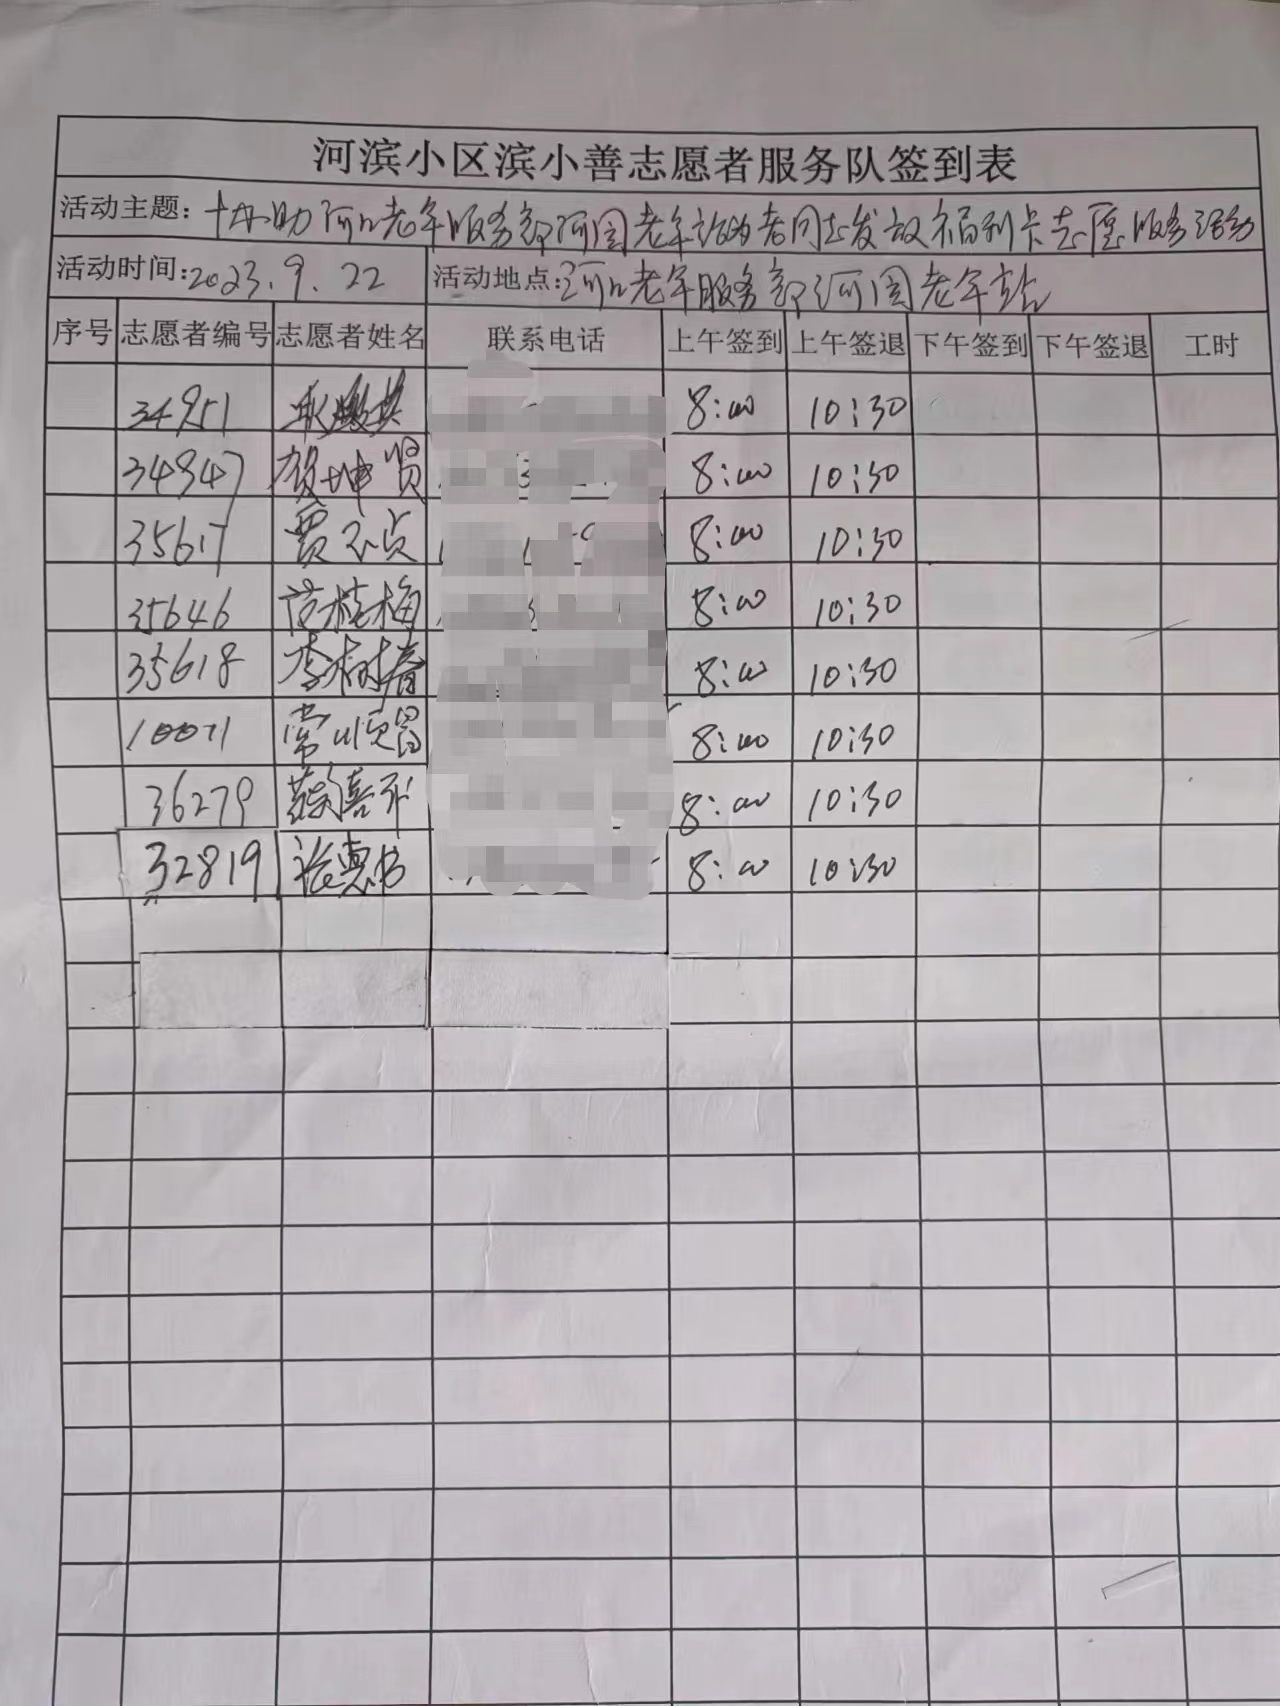 河滨小区滨小善志愿者服务队签到表
活动主题: 协助河北老年服务部河园老年站为老同志发放福利卡志愿服务活动
活动时间:2023.9.22 活动地点:河北老年服务部河园老年站
序号 志愿者编号 志愿者姓名 联系电话 上午签到 上午签退 下午签到 下午签退 工时
34951 8:00 10:30
34947 贺坤贤 8:00 10:30
35617 贾不贞 8:00 10:30
35646 范桂梅 8:00 10:30
35618 李树春 8:00 10:30
10071 常顺昌 8:00 10:30
36279 8:00 10:30
32819 8:00 10:30